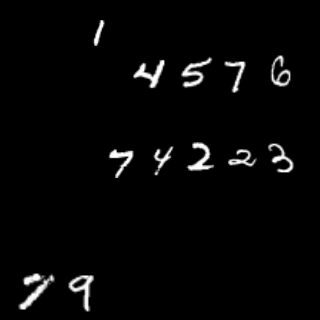 1
4576
74223
79